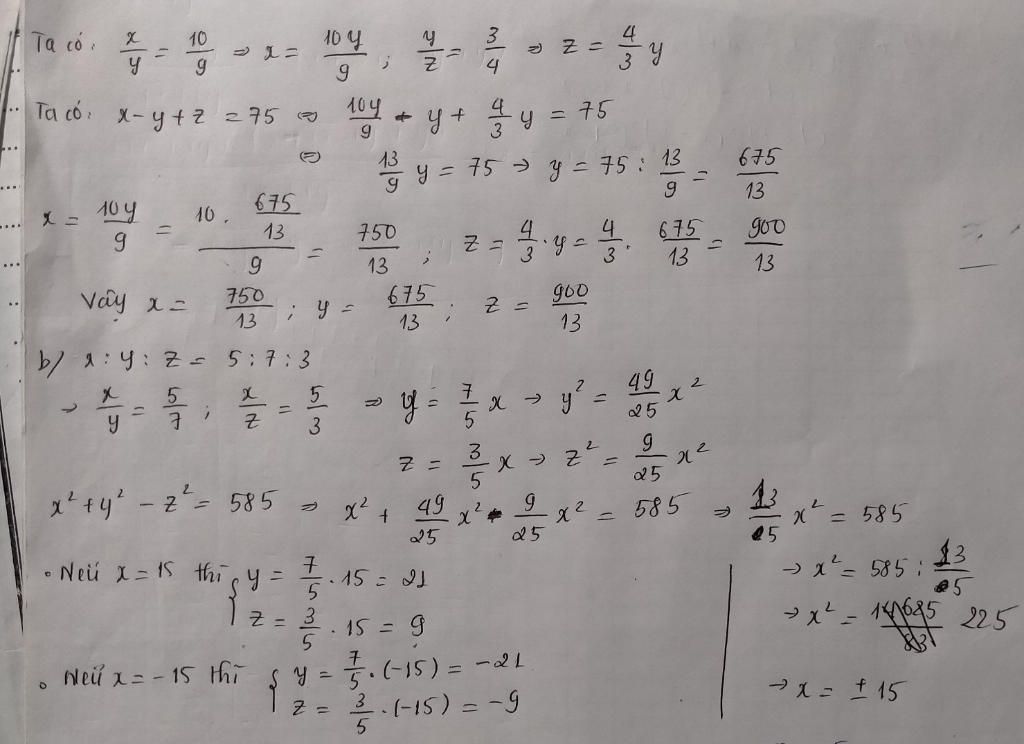 Ta có: x/y = 10/9 ⇒ x = 10y/9 ; y/z = 3/4 ⇒ z = 4/3 y
Ta có: x - y + z = 75 ⇔ 10y/9 - y + 4/3 y = 75
⇔ 13/9 y = 75 → y = 75 : 13/9 = 675/13
x = 10y/9 = (10 . 675/13)/9 = 750/13 ; z = 4/3 . y = 4/3 . 675/13 = 900/13
Vậy x = 750/13 ; y = 675/13 ; z = 900/13
b/ x : y : z = 5 : 7 : 3
→ x/y = 5/7 ; x/z = 5/3 ⇒ y = 7/5 x → y² = 49/25 x²
z = 3/5 x → z² = 9/25 x²
x² + y² - z² = 585 ⇒ x² + 49/25 x² - 9/25 x² = 585 ⇒ 13/5 x² = 585
→ x² = 585 : 13/5
→ x² = 225
→ x = ± 15
• Nếu x = 15 thì { y = 7/5 . 15 = 21
z = 3/5 . 15 = 9
• Nếu x = -15 thì { y = 7/5 . (-15) = -21
z = 3/5 . (-15) = -9